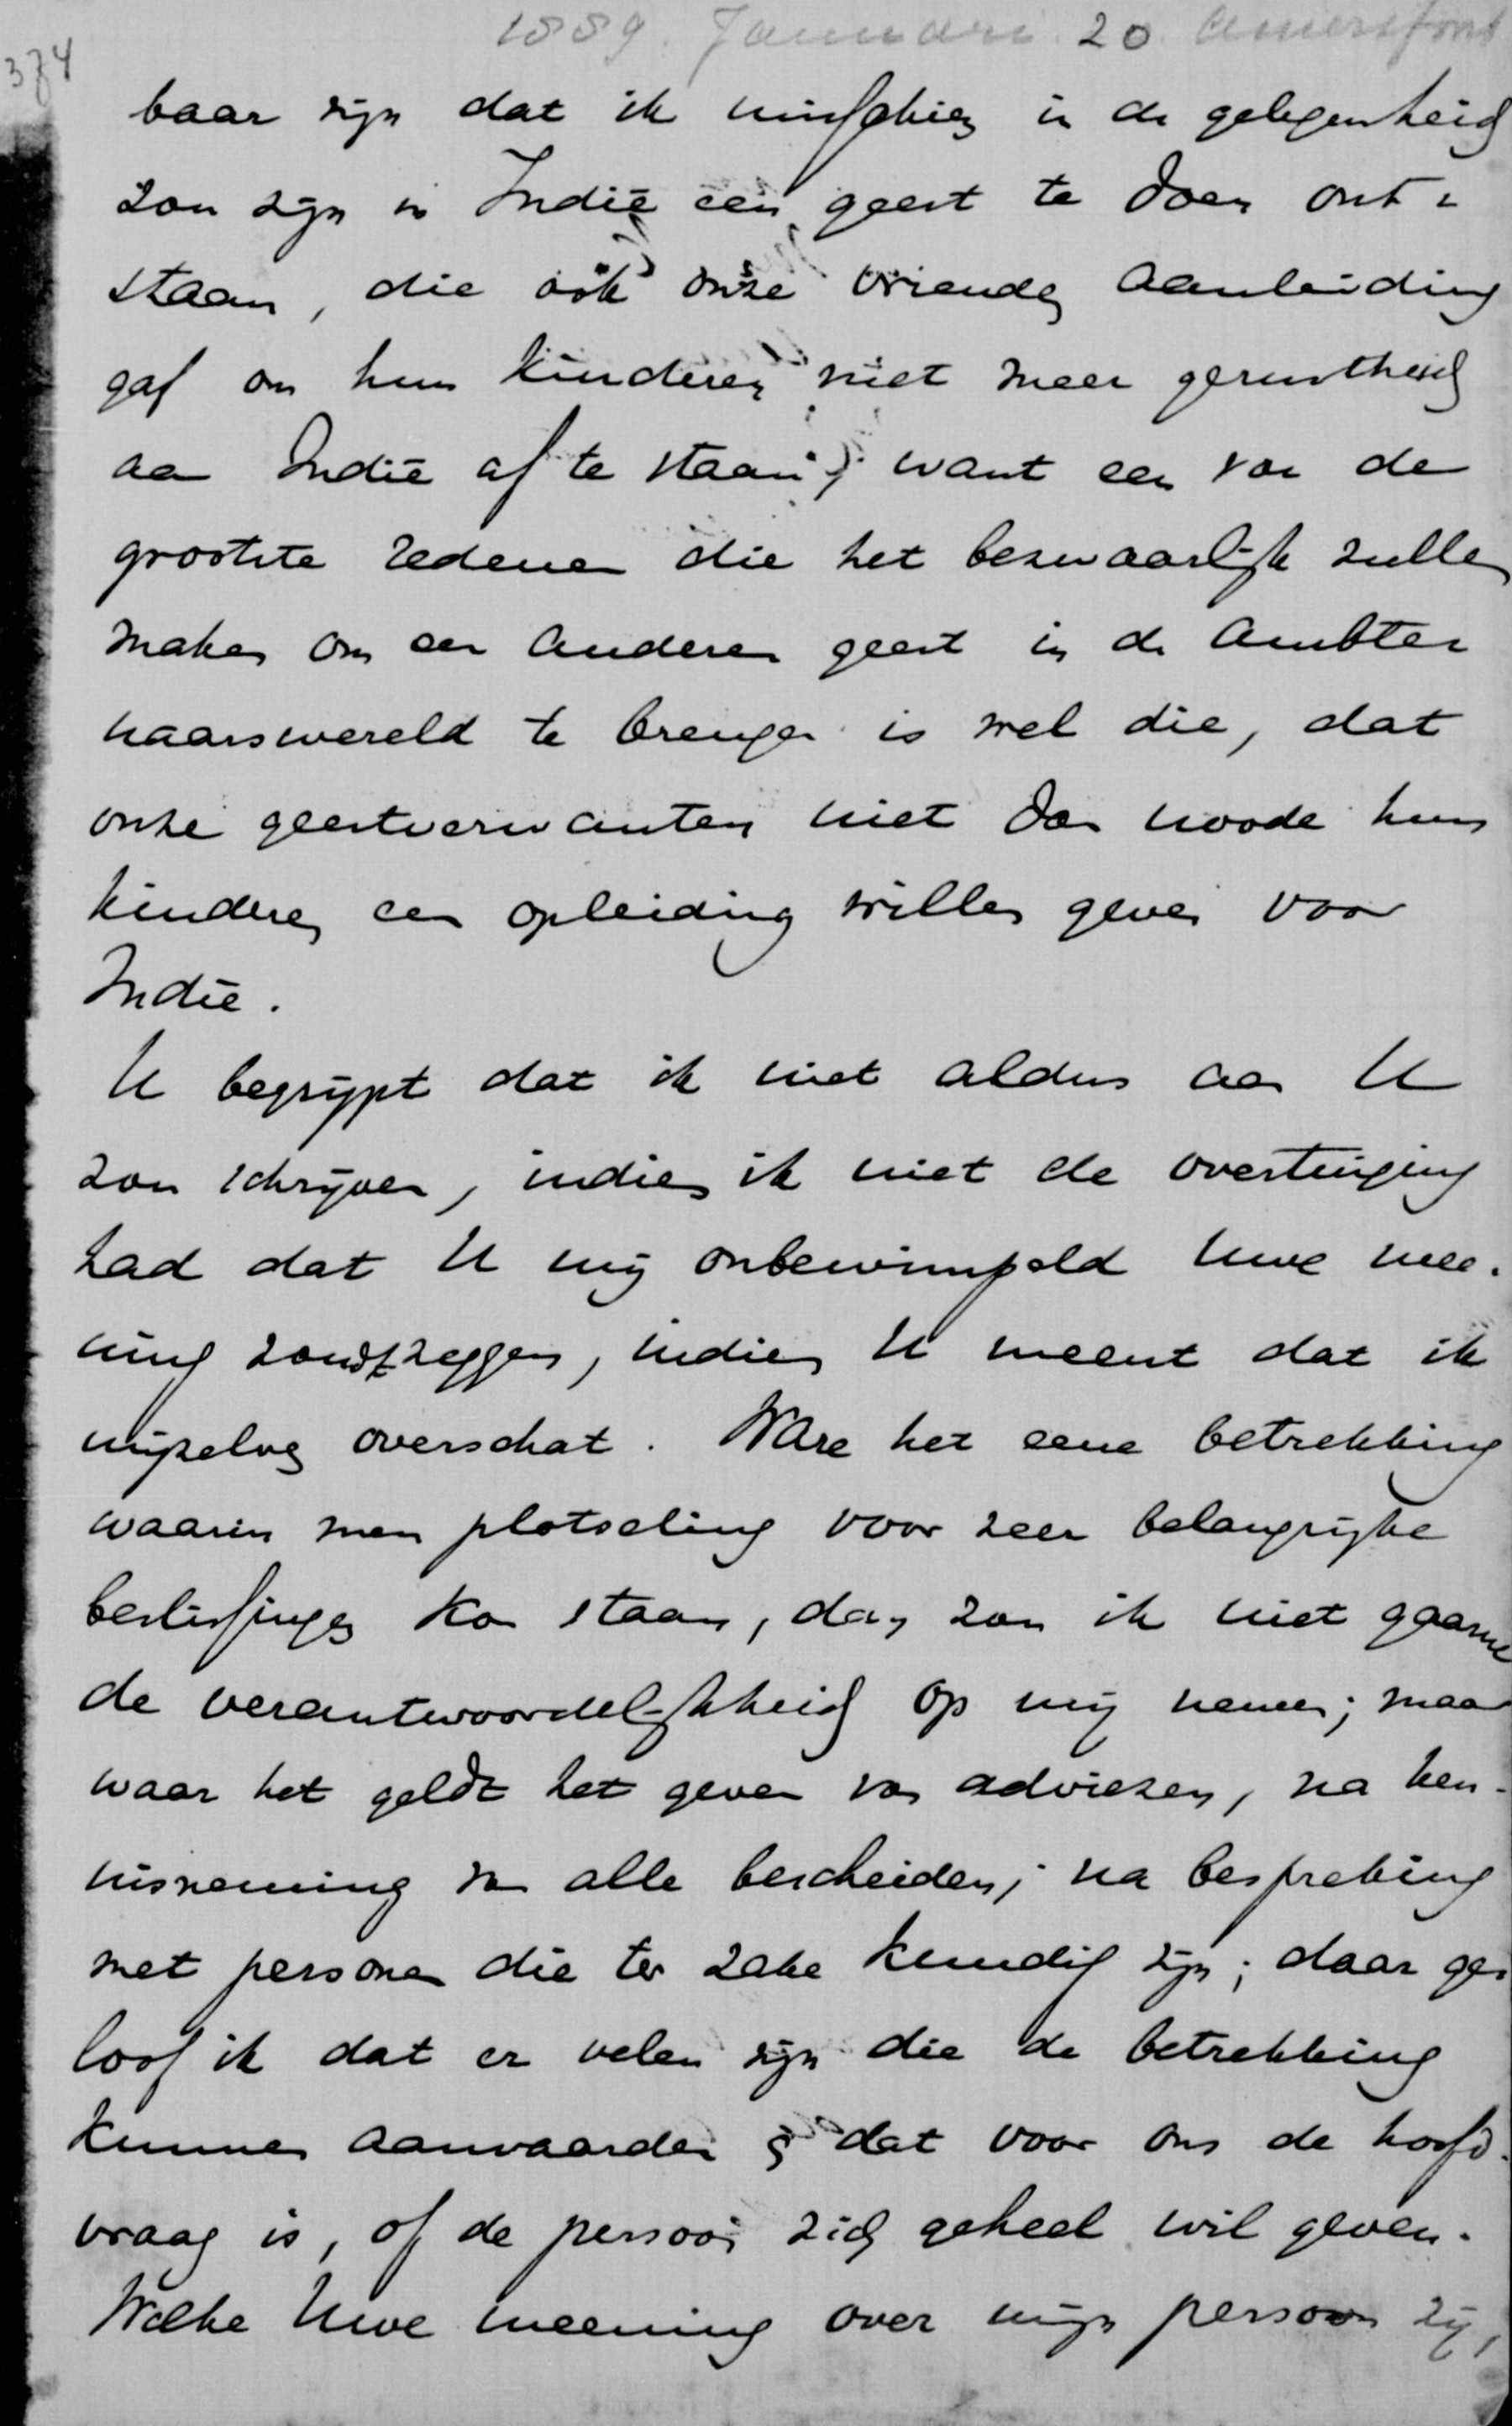 1889. Januari 20 Amersfoort
374
baar zijn dat ik misschien in de gelegenheid
zou zijn in Indië een geest te doen ont-
staan, die ook onze vrienden aanleiding
gaf om hun kinderen met meer gerustheid
aan Indië af te staan; want een van de
grootste redenen die het bezwaarlijk zullen
maken om een anderen geest in de ambte-
naarswereld te brengen is wel die, dat
onze geestverwanten niet dan noode hun
kinderen een opleiding willen geven voor
Indië.
U begrijpt dat ik niet aldus aan U
zou schrijven, indien ik niet de overtuiging
had dat U mij onbewimpeld Uwe mee-
ning zoudt zeggen, indien U meent dat ik
mijzelve overschat. Ware het eene betrekking
waarin men plotseling voor zeer belangrijke
beslissingen kon staan, dan zou ik niet gaarne
de verantwoordelijkheid op mij nemen; maar
waar het geldt het geven van adviezen, na ken-
nisneming van alle bescheiden, na bespreking
met personen die ter zake kundig zijn; daar ge-
loof ik dat er velen zijn die de betrekking
kunnen aanvaarden & dat voor ons de hoofd-
vraag is, of de persoon zich geheel wil geven.
Welke Uwe meening over mijn persoon zij,